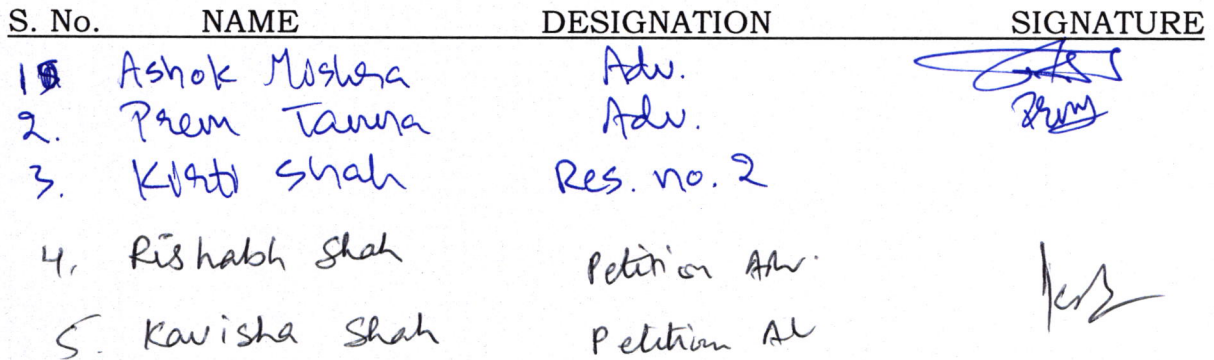 S. No. NAME DESIGNATION SIGNATURE
1 Ashok Mishra Adv.
2. Prem Tanna Adv.
3. Kirti Shah Res. no. 2
4. Rishabh Shah Petition Adv.
5. Kavisha Shah Petition